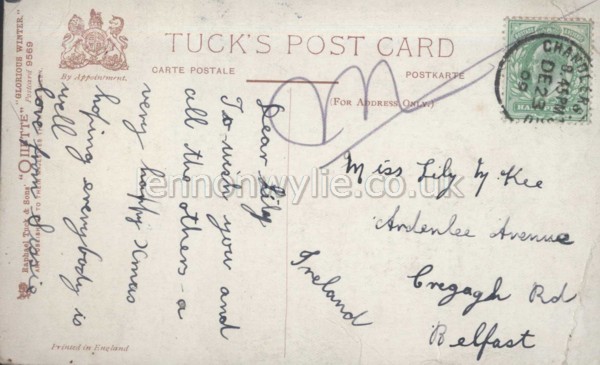 TUCK'S POST CARD
By Appointment.
CARTE POSTALE
POSTKARTE
(FOR ADDRESS ONLY.)
"GLORIOUS WINTER."
Postcard 9569
Raphael Tuck & Sons' "OILETTE"
Printed in England
DE 23
09
Dear Lily
To wish you and
all the others - a
very happy Xmas
hoping everybody is
well
love from
Miss Lily McKee
Ardenlee Avenue
Cregagh Rd
Belfast
Ireland
lennonwylie.co.uk